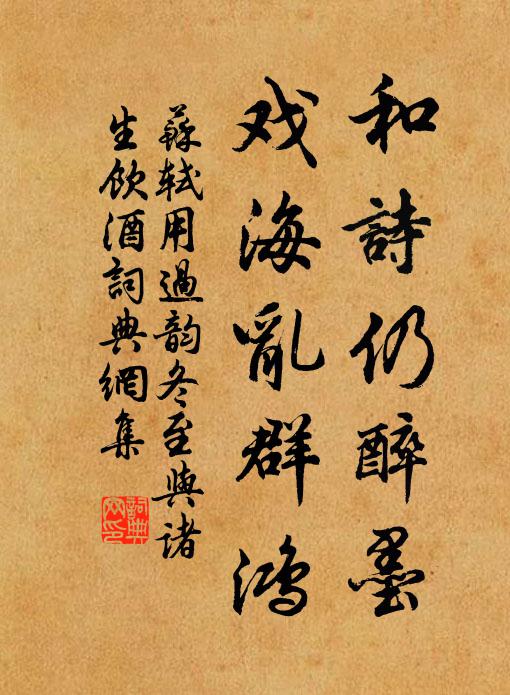 和詩仍醉墨
戏海亂群鴻
蘇轼用過韵冬至與诸
生飲酒詞典網集
詞典
网印